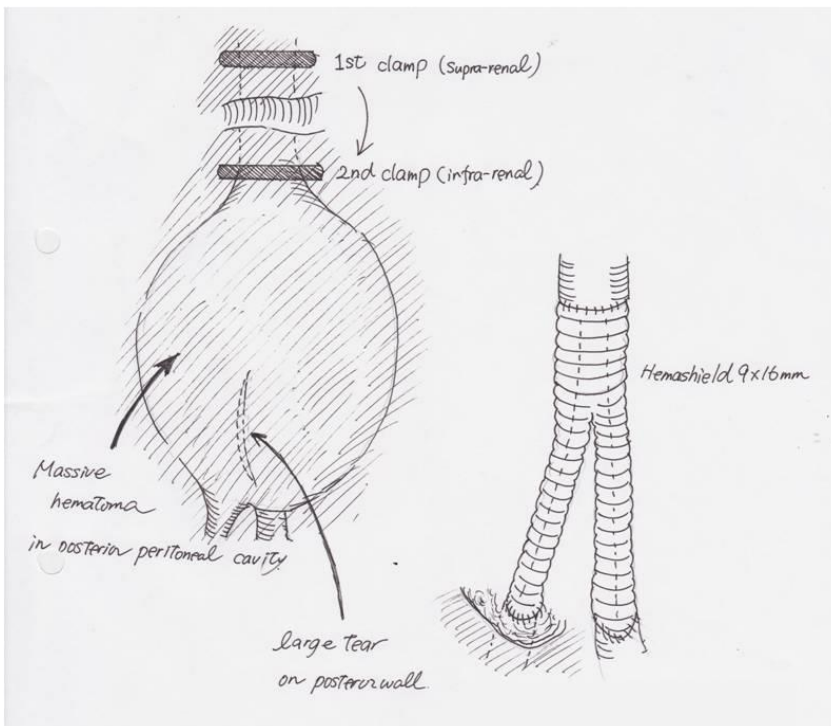 1st clamp (supra-renal)
2nd clamp (infra-renal)
Hemashield 9x16mm
Massive
hematoma
in posterior peritoneal cavity
large tear
on posterior wall.